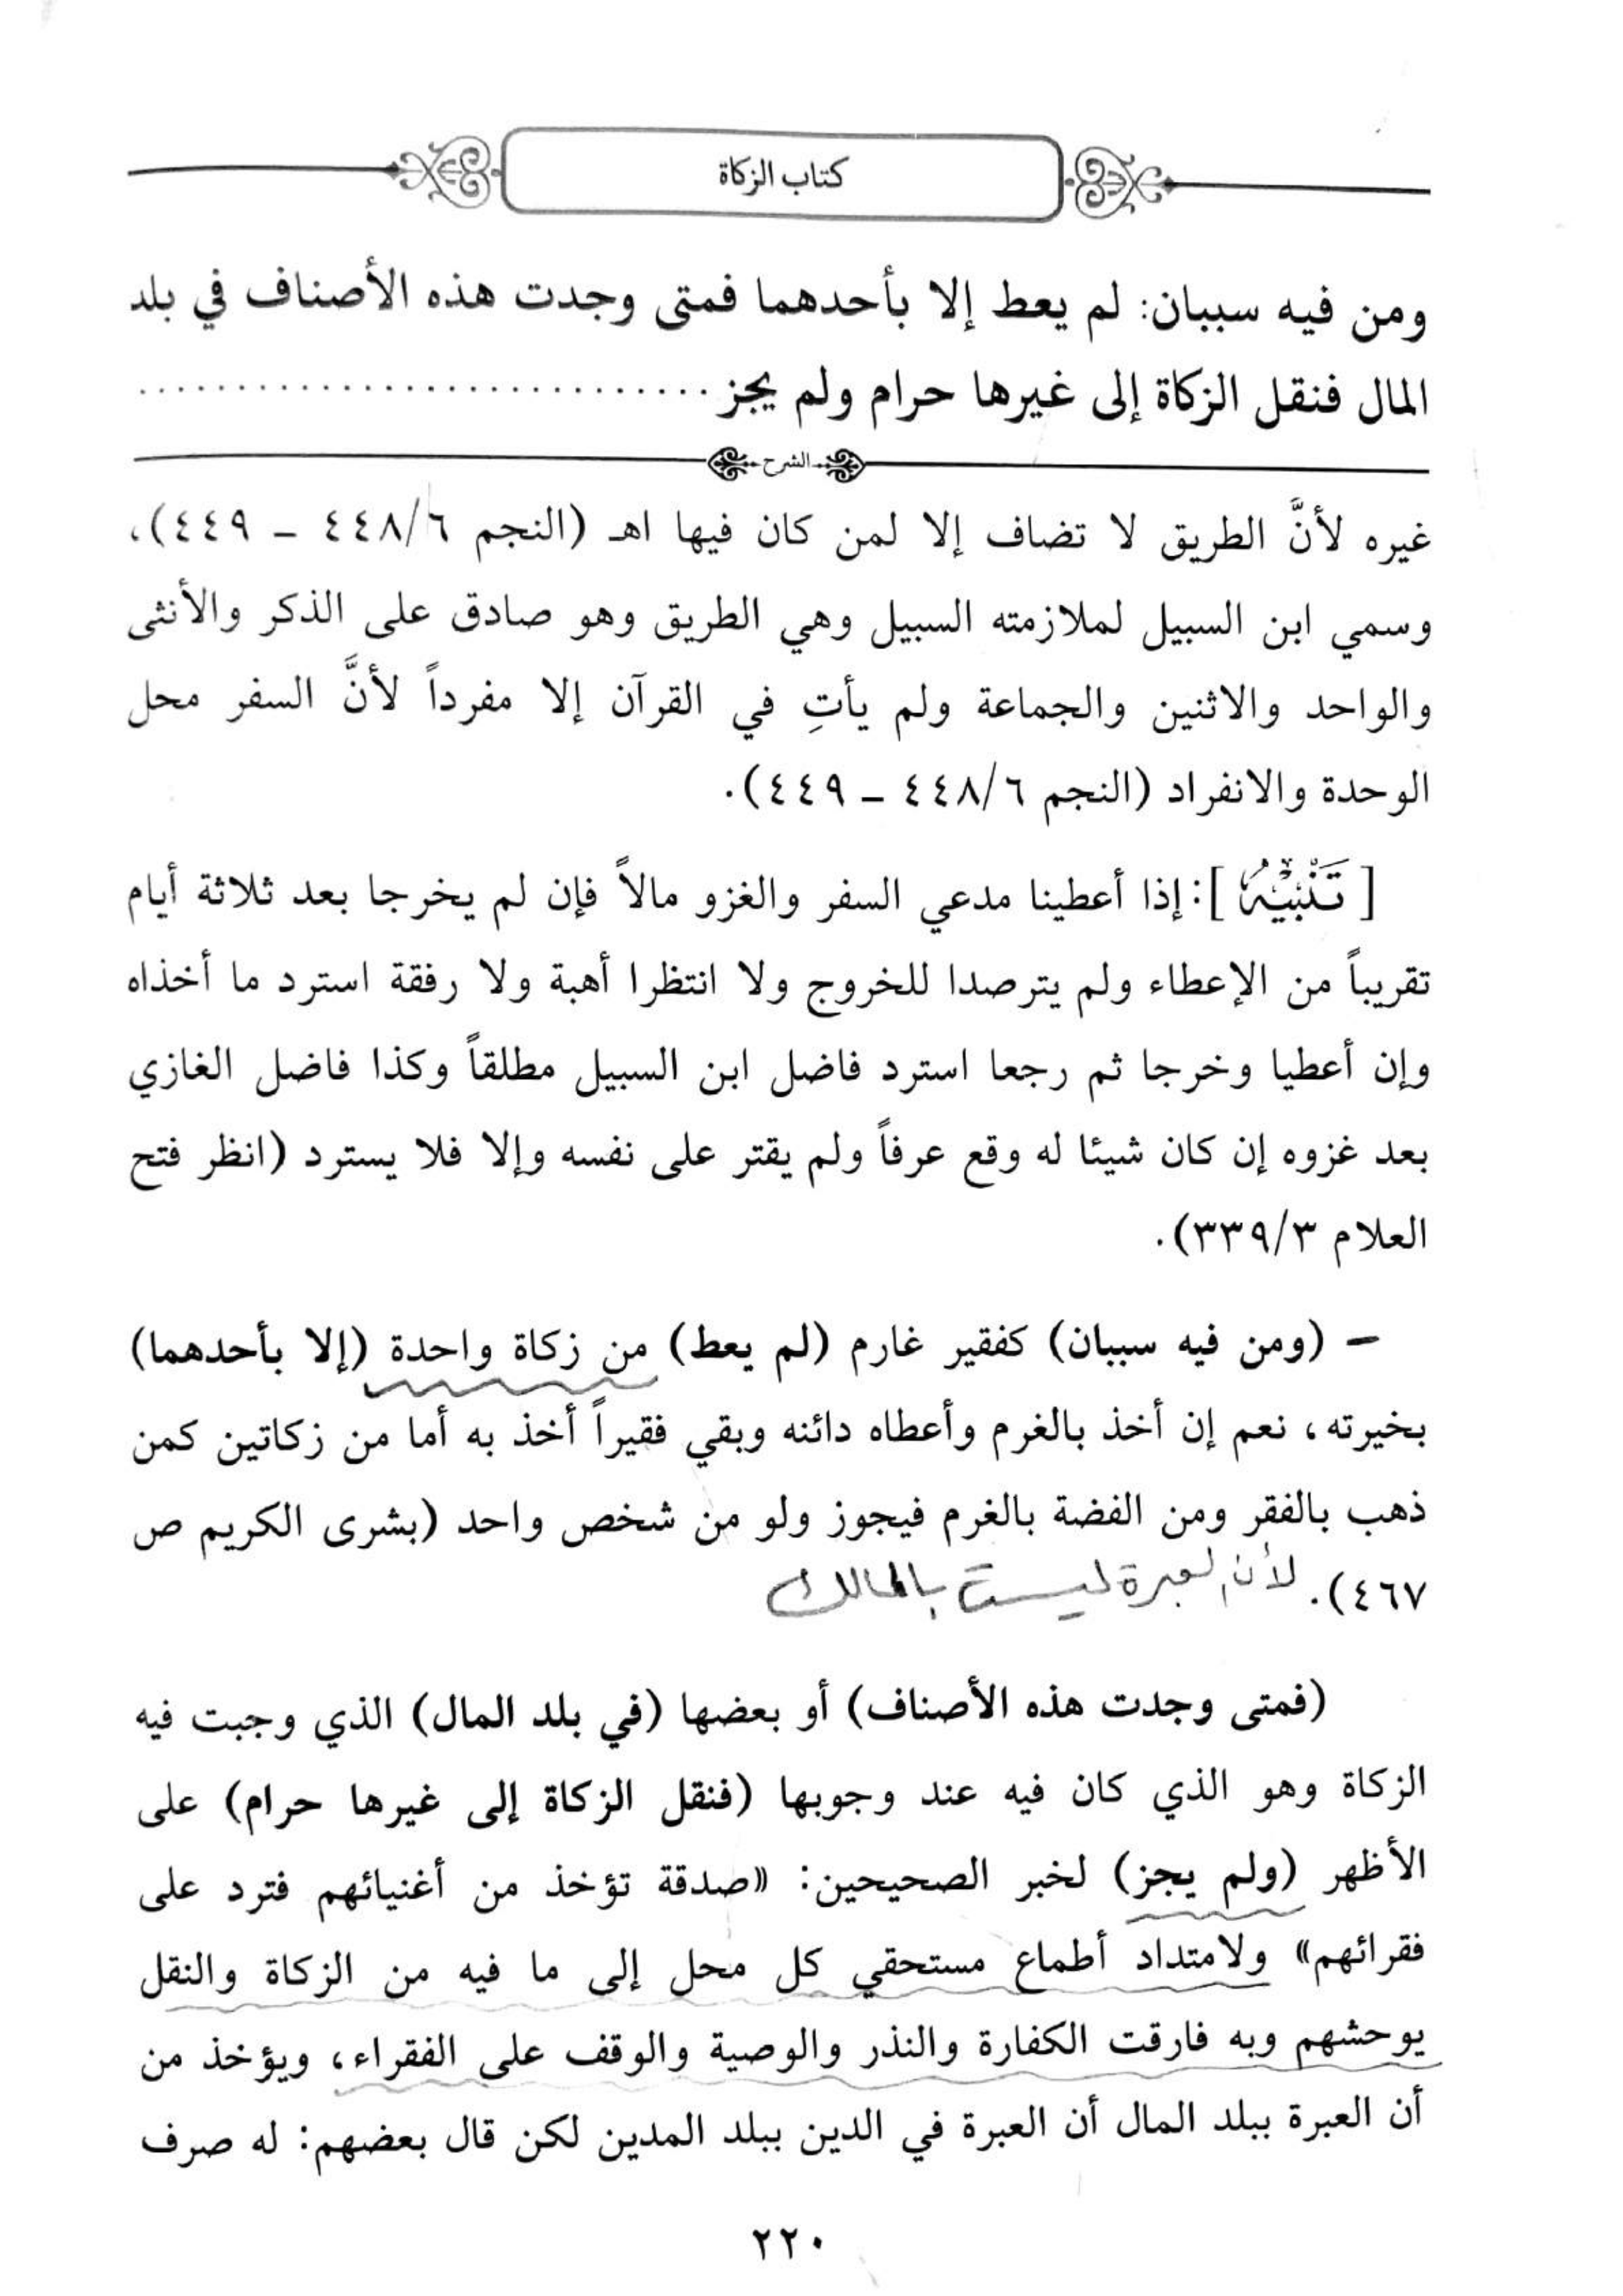 كتاب الزكاة
ومن فيه سببان: لم يعط إلا بأحدهما فمتى وجدت هذه الأصناف في بلد
المال فنقل الزكاة إلى غيرها حرام ولم يجز ............................
الشرح
غيره لأنَّ الطريق لا تضاف إلا لمن كان فيها اهـ (النجم ٤٤٨/٦ - ٤٤٩)،
وسمي ابن السبيل لملازمته السبيل وهي الطريق وهو صادق على الذكر والأنثى
والواحد والاثنين والجماعة ولم يأتِ في القرآن إلا مفرداً لأنَّ السفر محل
الوحدة والانفراد (النجم ٤٤٨/٦ - ٤٤٩).
[تَنْبِيْهٌ]: إذا أعطينا مدعي السفر والغزو مالاً فإن لم يخرجا بعد ثلاثة أيام
تقريباً من الإعطاء ولم يترصدا للخروج ولا انتظرا أهبة ولا رفقة استرد ما أخذاه
وإن أعطيا وخرجا ثم رجعا استرد فاضل ابن السبيل مطلقاً وكذا فاضل الغازي
بعد غزوه إن كان شيئا له وقع عرفاً ولم يقتر على نفسه وإلا فلا يسترد (انظر فتح
العلام ٣٣٩/٣).
- (ومن فيه سببان) كفقير غارم (لم يعط) من زكاة واحدة (إلا بأحدهما)
بخيرته، نعم إن أخذ بالغرم وأعطاه دائنه وبقي فقيراً أخذ به أما من زكاتين كمن
ذهب بالفقر ومن الفضة بالغرم فيجوز ولو من شخص واحد (بشرى الكريم ص
٤٦٧). لأن العبرة ليست بالمالك
(فمتى وجدت هذه الأصناف) أو بعضها (في بلد المال) الذي وجبت فيه
الزكاة وهو الذي كان فيه عند وجوبها (فنقل الزكاة إلى غيرها حرام) على
الأظهر (ولم يجز) لخبر الصحيحين: «صدقة تؤخذ من أغنيائهم فترد على
فقرائهم» ولامتداد أطماع مستحقي كل محل إلى ما فيه من الزكاة والنقل
يوحشهم وبه فارقت الكفارة والنذر والوصية والوقف على الفقراء، ويؤخذ من
أن العبرة ببلد المال أن العبرة في الدين ببلد المدين لكن قال بعضهم: له صرف
٢٢٠